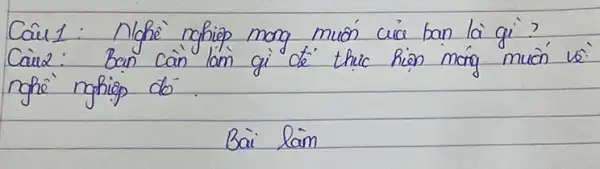 Câu 1: Nghề nghiệp mong muốn của bạn là gì?
Câu 2: Bạn cần làm gì để thực hiện mong muốn về
nghề nghiệp đó.
Bài làm